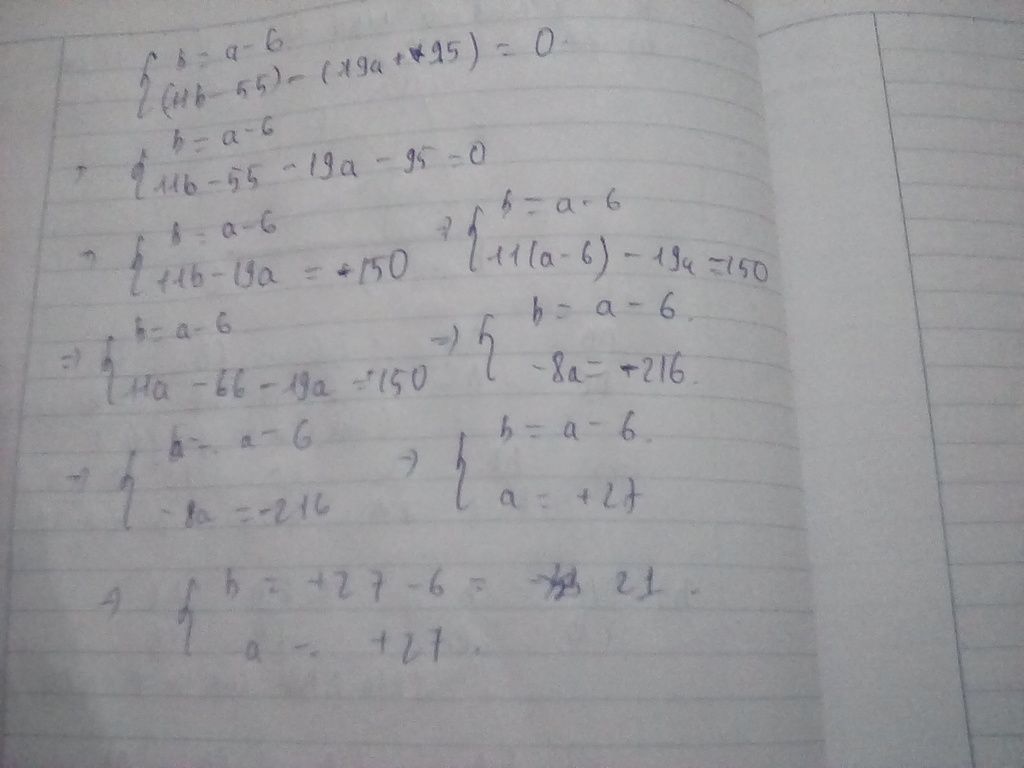 { b = a - 6
(11b - 55) - (19a + 95) = 0
{ b = a - 6
11b - 55 - 19a - 95 = 0
→ { b = a - 6 → { b = a - 6
11b - 19a = 150 11(a - 6) - 19a = 150
⇒ { b = a - 6 ⇒ { b = a - 6.
11a - 66 - 19a = 150 -8a = 216.
→ { b = a - 6 → { b = a - 6.
-8a = -216 a = +27
→ { b = +27 - 6 = 21.
a = +27.